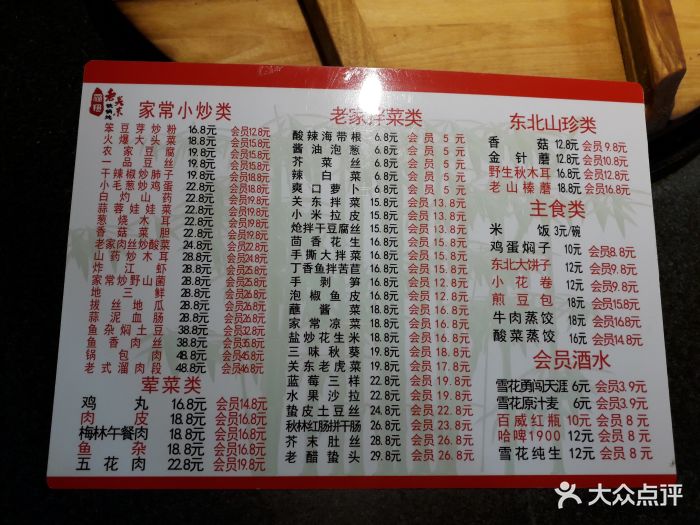 老关东
铁锅炖
家常小炒类
笨豆芽炒粉 16.8元 会员12.8元
火爆大头菜 18.8元 会员16.8元
农家豆腐 19.8元
一品豆 18.8元
干辣椒炒肺子 22.8元 会员19.8元
小毛葱炒鸡蛋 22.8元 会员19.8元
白灼山药 22.8元 会员19.8元
蒜蓉娃娃菜 22.8元 会员19.8元
葱烧木耳 22.8元 会员19.8元
香菇菜胆 22.8元 会员19.8元
老家肉丝炒酸菜 24.8元
山药炒木耳 28.8元
炸江虾 28.8元
家常炒野山菌 28.8元
地三鲜 28.8元 会员26.8元
拔丝地瓜 28.8元 会员26.8元
蒜泥血肠 28.8元 会员26.8元
鱼杂焖土豆 38.8元
鱼香肉丝 38.8元 会员35.8元
锅包肉 48.8元 会员45.8元
老式溜肉段 48.8元 会员46.8元
荤菜类
鸡丸 16.8元 会员14.8元
肉皮 18.8元 会员16.8元
梅林午餐肉 18.8元 会员16.8元
鱼杂 18.8元 会员16.8元
五花肉 22.8元 会员19.8元
老家拌菜类
酸辣海带根 6.8元 会员 5 元
酱油泡葱 6.8元 会员 5 元
芥菜丝 6.8元 会员 5 元
辣白菜 6.8元 会员 5 元
爽口萝卜 6.8元 会员 5 元
关东拌菜 15.8元 会员 13.8元
小米拉皮 15.8元 会员 13.8元
炝拌干豆腐丝 15.8元 会员 13.8元
茴香花生 16.8元 会员 14.8元
手撕大拌菜 16.8元 会员 14.8元
丁香鱼拌苦苣 16.8元 会员 14.8元
手剥笋 16.8元 会员 14.8元
泡椒鱼皮 18.8元 会员 16.8元
蘸酱菜 18.8元 会员 16.8元
家常凉菜 18.8元 会员 16.8元
盐炒花生米 18.8元 会员 16.8元
三味秋葵 19.8元 会员 18.8元
关东老虎菜 19.8元 会员 18.8元
蓝莓三样 22.8元 会员 19.8元
水果沙拉 22.8元 会员 19.8元
蛰皮土豆丝 24.8元 会员 21.8元
秋林红肠拼干肠 26.8元 会员 23.8元
芥末肚丝 28.8元 会员 26.8元
老醋蛰头 29.8元 会员 26.8元
东北山珍类
香菇 12.8元 会员9.8元
金针蘑 12.8元 会员10.8元
野生秋木耳 16.8元 会员12.8元
老山榛蘑 18.8元 会员16.8元
主食类
米饭 3元/碗
鸡蛋焖子 10元 会员8.8元
东北大饼子 12元 会员9.8元
小花卷 12元 会员9.8元
煎豆包 18元 会员15.8元
牛肉蒸饺 18元 会员16.8元
酸菜蒸饺 16元 会员14.8元
会员酒水
雪花勇闯天涯 6元 会员3.9元
雪花原汁麦 6元 会员3.9元
百威红瓶 10元 会员 8 元
哈啤1900 12元 会员 8 元
雪花纯生 12元 会员 8 元
大众点评